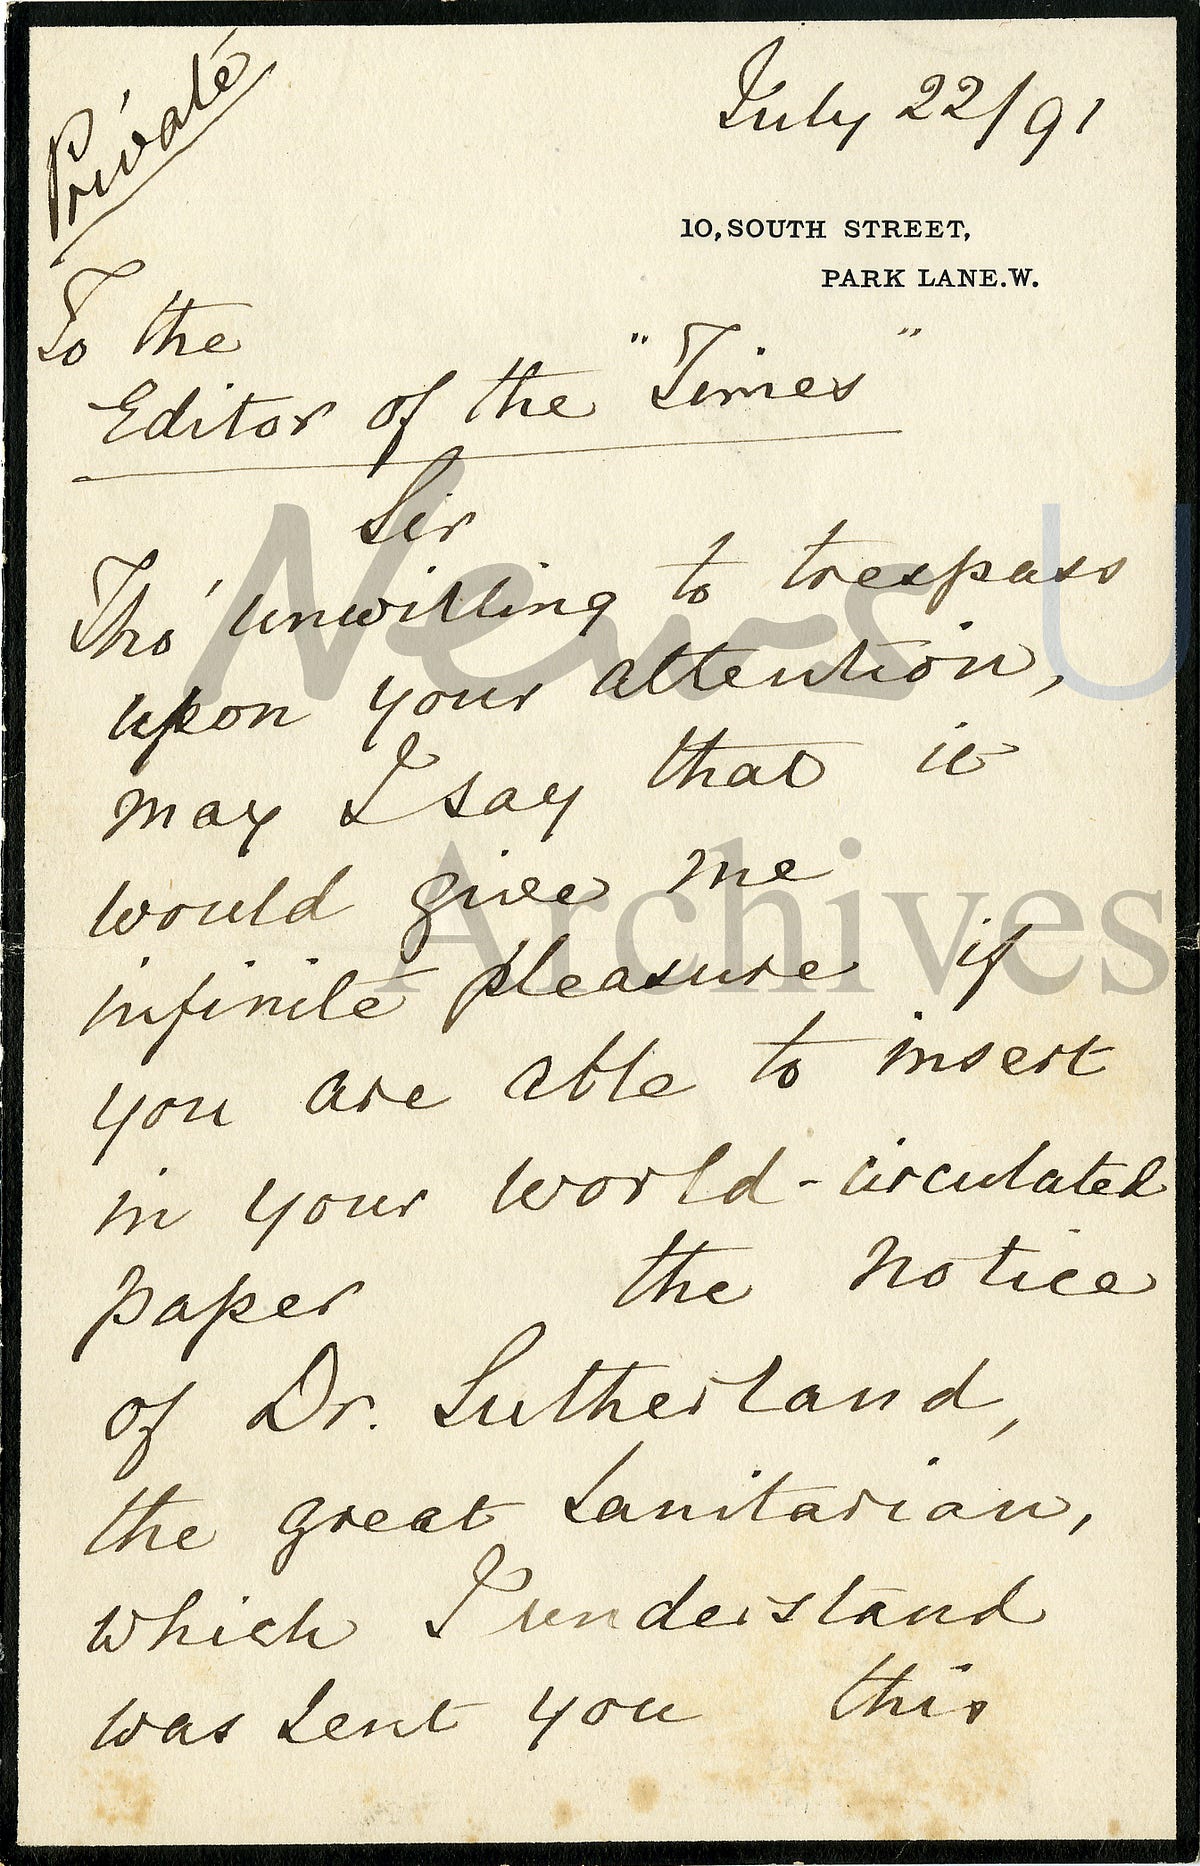 Private
July 22/91
10, SOUTH STREET,
PARK LANE. W.
To the
Editor of the "Times"
Sir
Tho' unwilling to trespass
upon your attention,
may I say that it
would give me
infinite pleasure if
you are able to insert
in your world-circulated
paper the notice
of Dr. Sutherland,
the great Sanitarian,
which I understand
was sent you this
News U
Archives